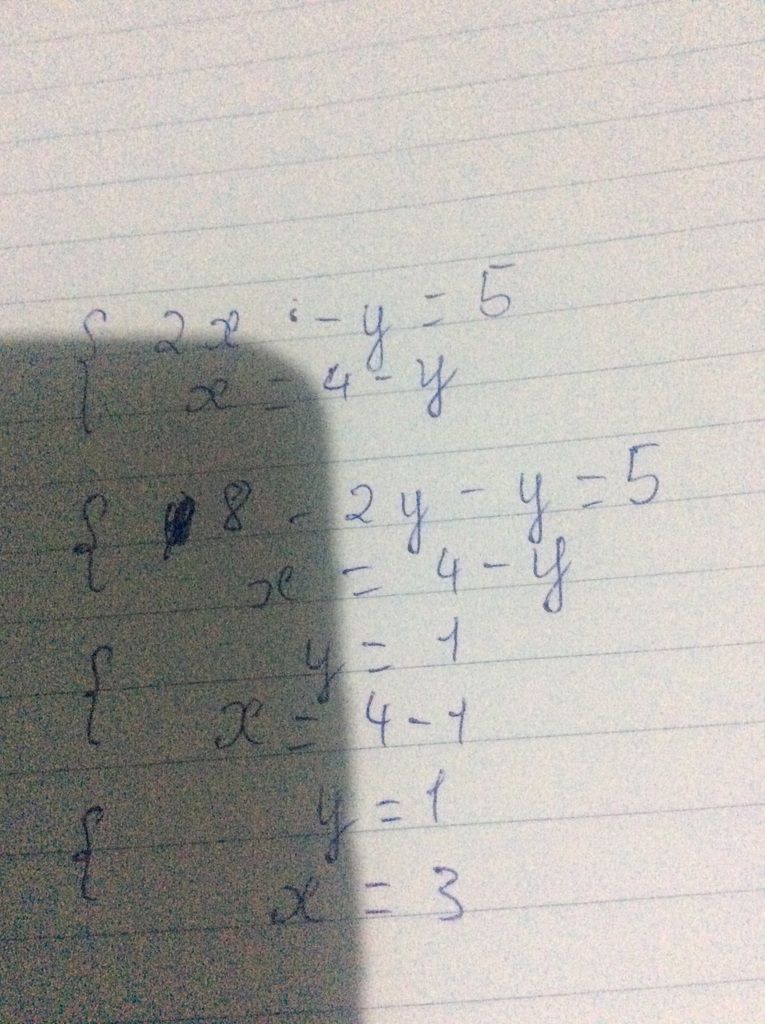 { 2x - y = 5
x = 4 - y
{ 8 - 2y - y = 5
x = 4 - y
{ y = 1
x = 4 - 1
{ y = 1
x = 3